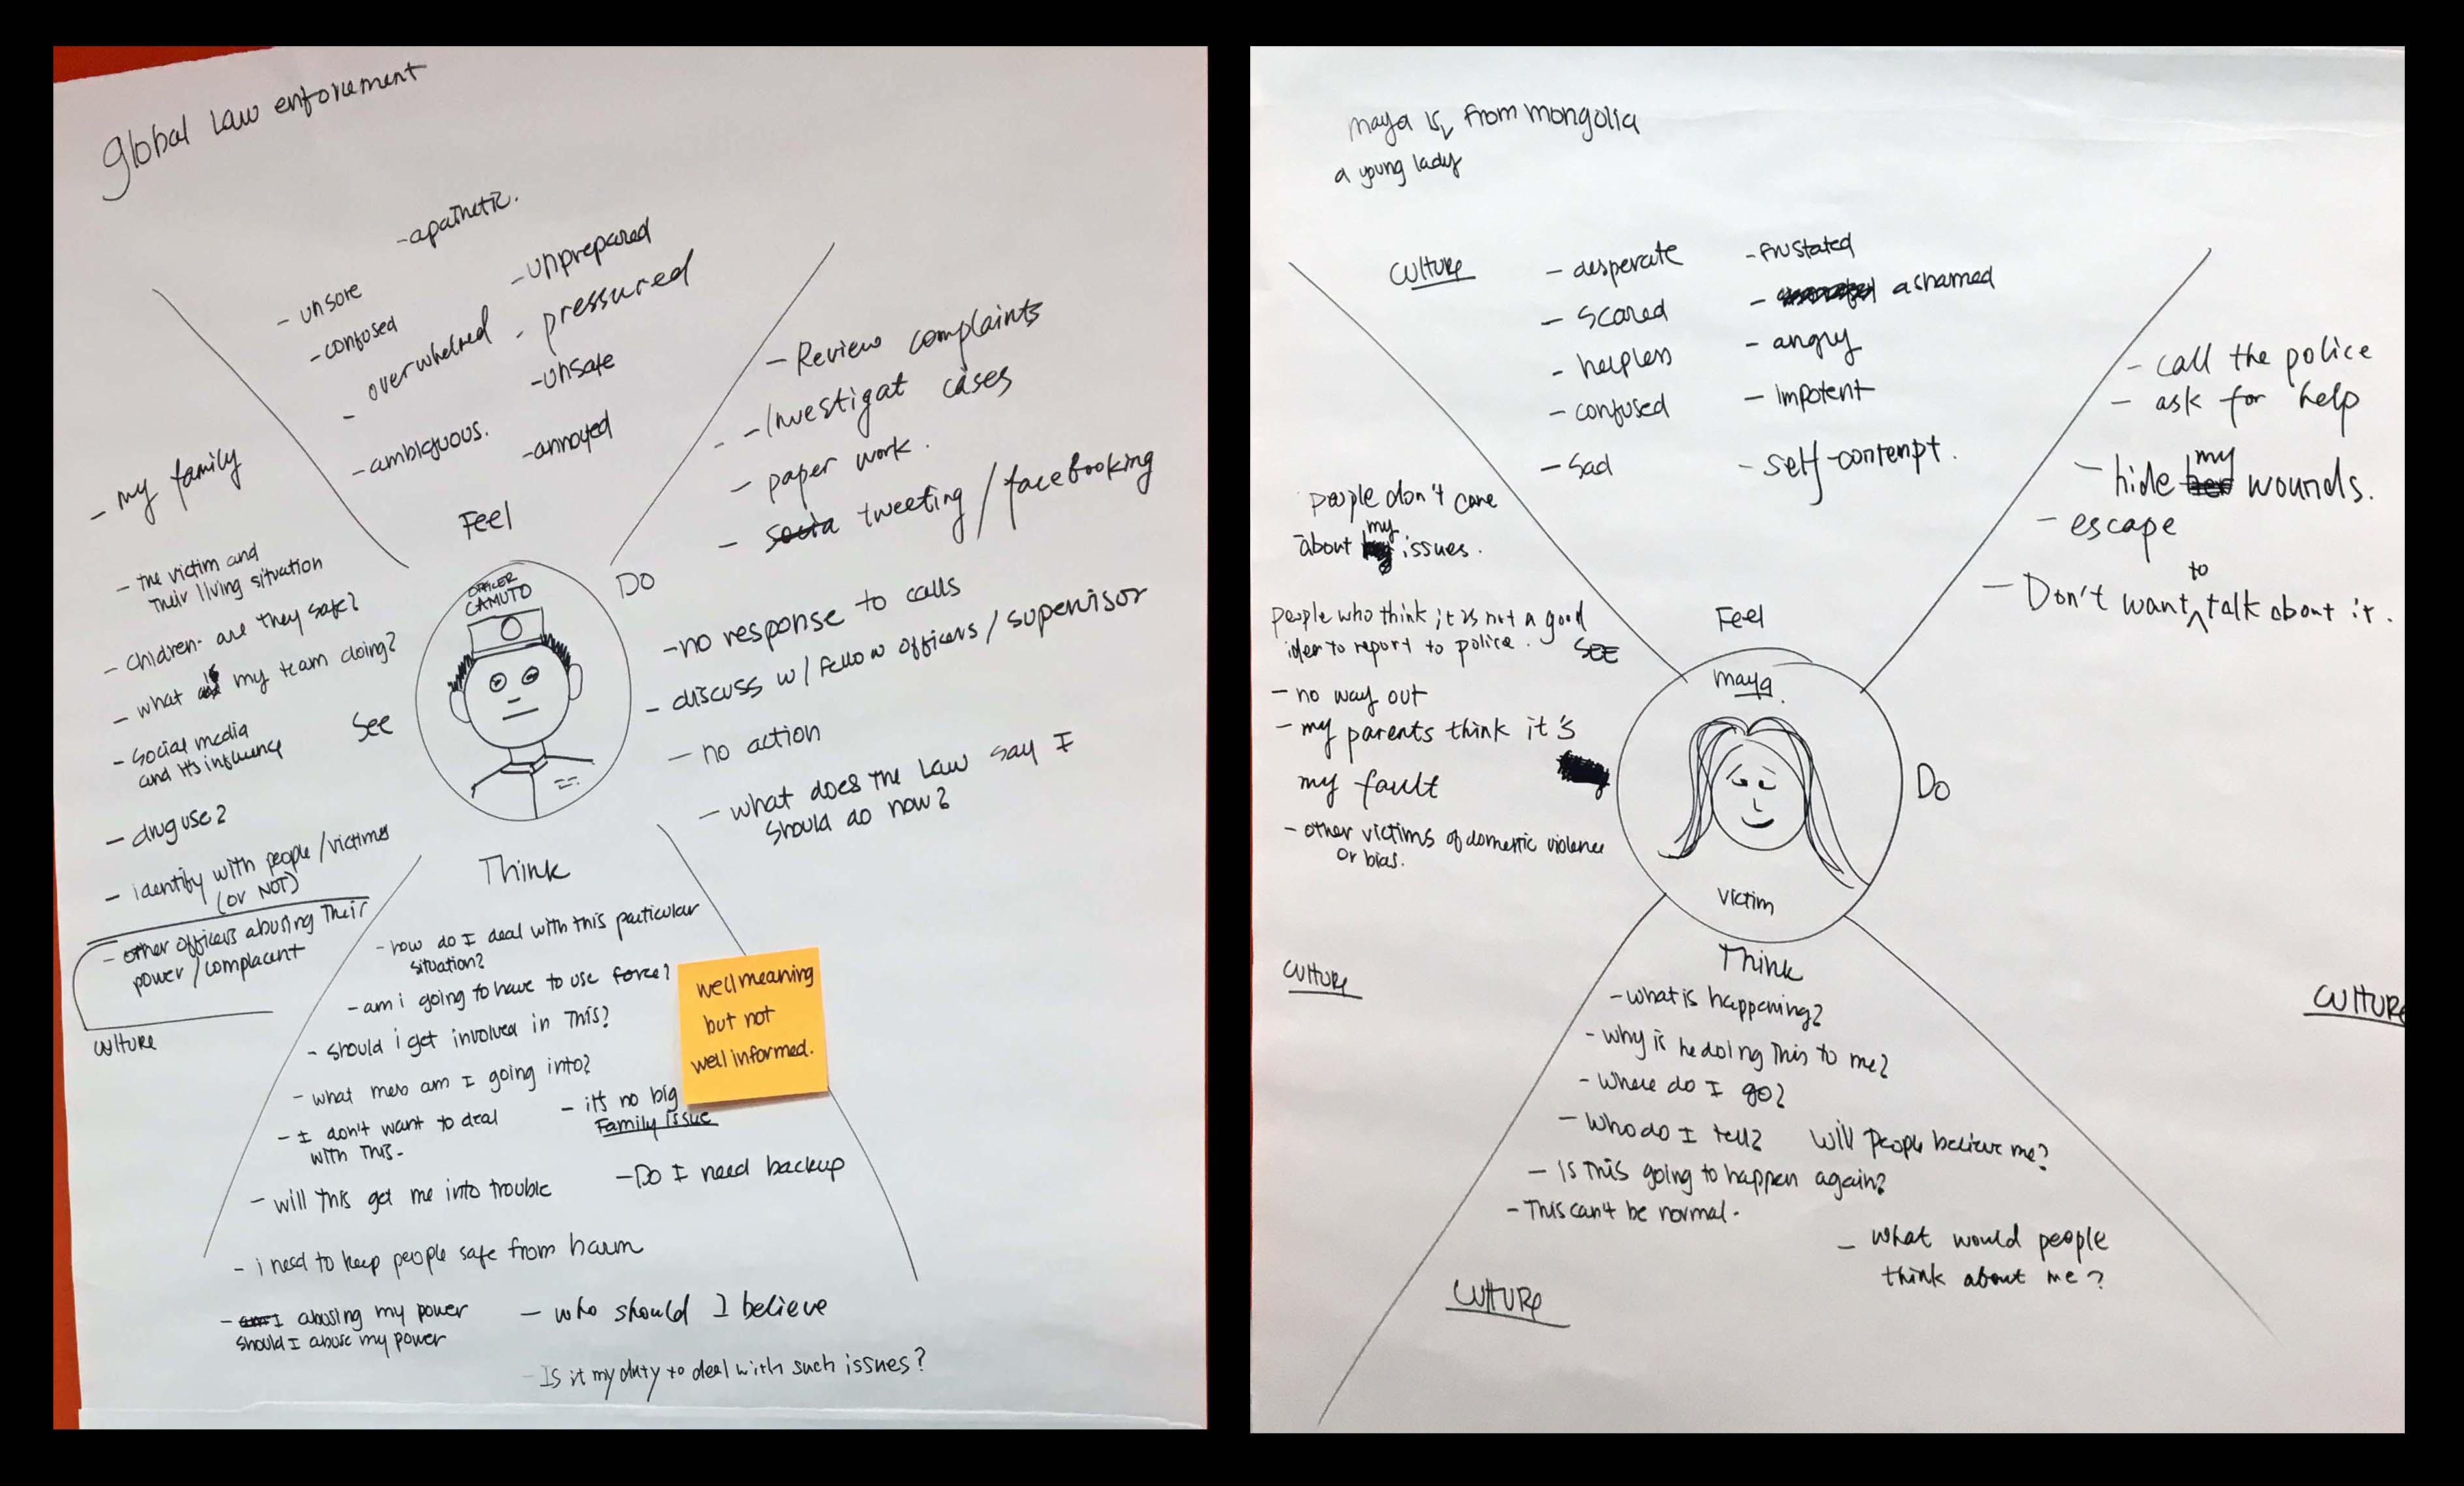 global law enforcement
- apathetic.
- unsore
- confused
- overwhelmed
- ambiguous.
- unprepared
- pressured
- unsafe
- annoyed
Feel
- Review complaints
- Investigat cases
- paper work.
- tweeting / facebooking
Do
- no response to calls
- discuss w/ fellow officers / supervisor
- no action
- what does the law say I
should do now?
- my family
- the victim and
their living situation
- children - are they safe?
- what is my team doing?
- social media
and its influency
See
- drug use?
- identify with people / victims
(or NOT)
- other officers abusing their
power / complacent
culture
OFFICER
CAMUTO
Think
- how do I deal with this particular
situation?
- am i going to have to use force?
- should i get involved in this?
- what mess am I going into?
- I don't want to deal
with this-
- it's no big
Family issue
- will this get me into trouble
- Do I need backup
- i need to keep people safe from harm
- I abusing my power
should I abuse my power
- who should I believe
- Is it my duty to deal with such issues?
well meaning
but not
well informed.
maya is from mongolia
a young lady
culture
- desperate
- scared
- helpless
- confused
- sad
- frustated
- ashamed
- angry
- impotent
- self-contempt.
Feel
- call the police
- ask for help
- hide my wounds.
- escape
- Don't want to talk about it.
Do
people don't care
about my issues.
people who think it is not a good
idea to report to police.
SEE
- no way out
- my parents think it's
my fault
- other victims of domestic violence
or bias.
culture
maya
victim
Think
- what is happening?
- why is he doing this to me?
- where do I go?
- who do I tell? will people believe me?
- Is this going to happen again?
- This can't be normal-
- what would people
think about me?
culture
culture